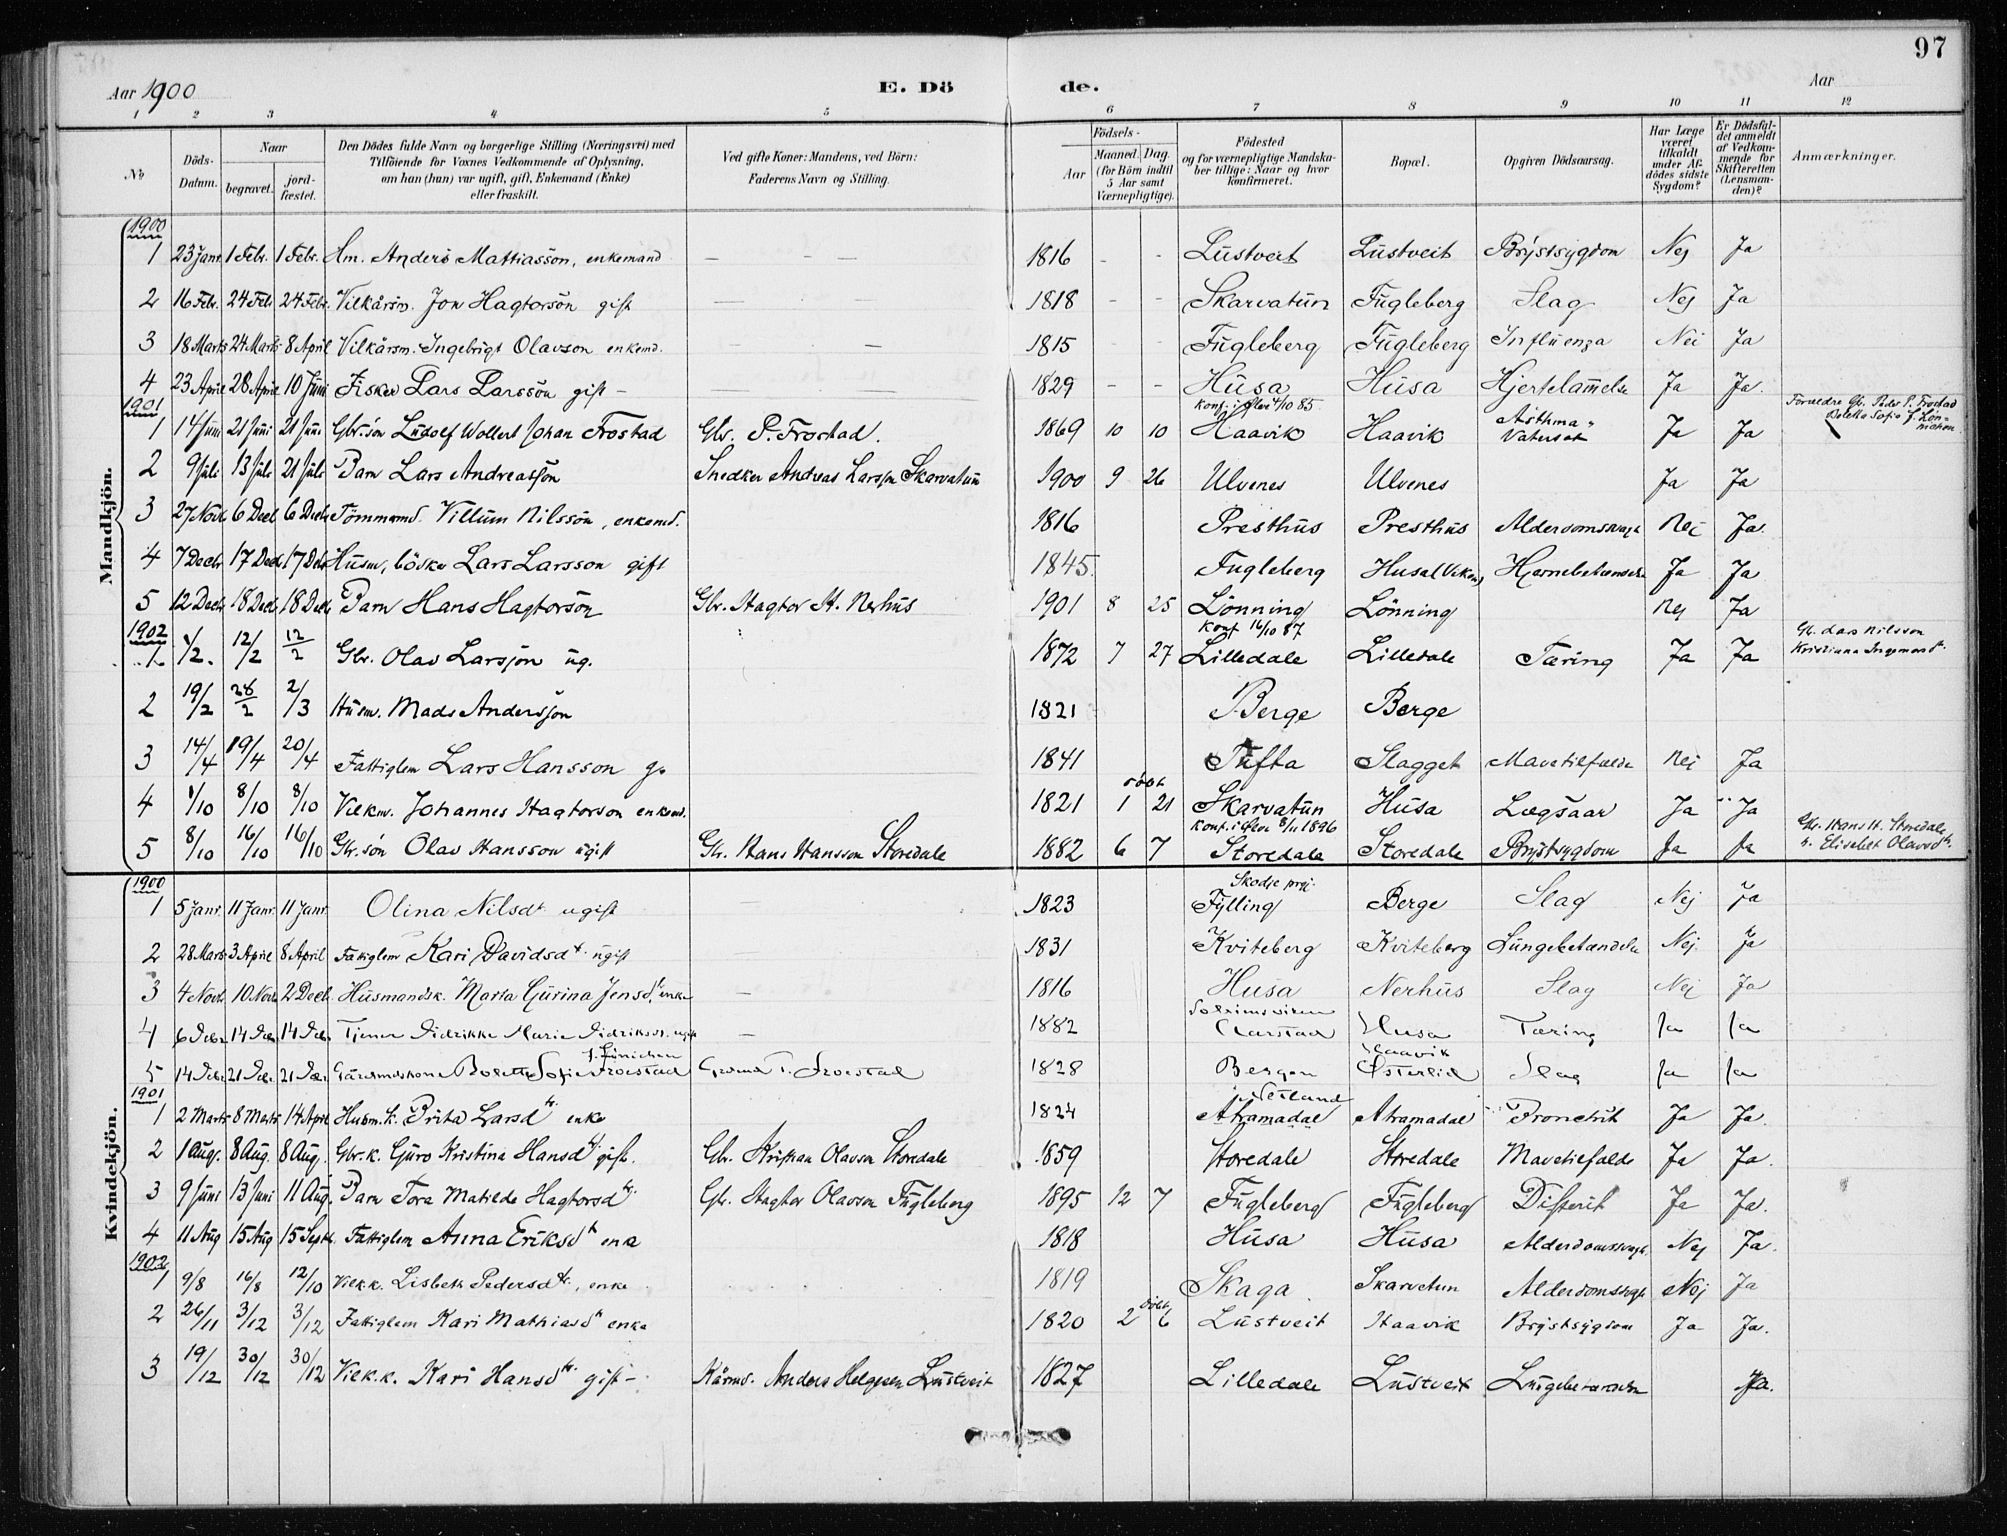 97
Aar 1900 E. Dö de. Aar
1 2 3 4 5 6 7 8 9 10 11 12
No
Döds-Datum.
Naar
begravet.
jord-fæstet.
Den Dödes fulde Navn og borgerlige Stilling (Næringsvei) med
Tilföiende for Voxnes Vedkommende af Oplysning,
om han (hun) var ugift, gift, Enkemand (Enke)
eller fraskilt.
Ved gifte Koner: Mandens, ved Börn:
Faderens Navn og Stilling.
Födsels-
Aar
Maaned. Dag.
(for Börn indtil
5 Aar samt
Værnepligtige).
Födested
og for værnepligtige Mandska-
ber tillige: Naar og hvor
konfirmeret.
Bopæl.
Opgiven Dödsaarsag.
Har Læge
været
tilkaldt
under Af-
dödes sidste
Sygdom?
Er Dödsfal-
det anmeldt
af Vedkom-
mende for
Skifteretten
(Lensman-
den)?
Anmærkninger.
Mandkjön.
1900
1 23 Janr. 1 Febr. 1 Febr. Hm. Anders Mattiassön, enkemand — — — 1816 - - Lustveit Lustveit Brystsygdom Nej Ja
2 16 Febr. 24 Febr. 24 Febr. Vilkårsm. Jon Hagtorsön gift — 1818 - - Skarvatun Fugleberg Slag Nej Ja
3 18 Marts 24 Marts 8 April Vilkårsm. Ingebrigt Olavson enkemd. — — 1815 - - Fugleberg Fugleberg Influenza Nei Ja
4 23 April 28 April 10 Juni Fisker Lars Larssön gift — 1829 - - Husa Husa Hjertelammelse Ja Ja.
1901
konf. i Ølve 4/10 85
Forældre Gb. Peder P. Frostad
1 14 Juni 21 Juni 21 Juni Gbr.sön Ludolf Wollert Johan Frostad Gbr. P. Frostad. 1869 10 10 Haavik Haavik Asthma Vatersot Ja Ja Boletta Sofie f.
2 9 Juli 13 Juli 21 Juli Barn Lars Andreasson Snedker Andreas Larsson Skarvatun 1900 9 26 Ulvenes Ulvenes Ja Ja
3 27 Novb. 6 Decb. 6 Decb. Tömmermd. Villum Nilssön, enkemd. 1816 Presthus Presthus Alderdomssvagh. Nei Ja.
4 7 Decb. 17 Decb. 17 Decb. Husm, bödker Lars Larsson gift 1845. Fugleberg Husa (Viken) Hjernebetændelse Ja Ja
5 12 Decb. 18 Decb. 18 Decb. Barn Hans Hagtorsön Gbr. Hagtor H. Nerhus 1901 8 25 Lönning Lönning Nej Ja
1902
konf 16/10 87
Gb. Lars Nilsson
1 1/2. 12/2 12/2 Gbr. Olav Larsson ug. 1872 7 27 Lilledale Lilledale Tæring Ja Ja Kristiana Ingemorsdtr.
2 19/2 28/2 2/3 Husm. Mads Andersson 1821 Berge Berge
3 14/4 19/4 20/4 Fattiglem Lars Hansson g. 1841 Tufta Slagget Mavetilfælde Nej Ja
4 1/10 8/10 8/10 Vilkm. Johannes Hagtorson enkemd. 1821 döbt 1 21 Skarvatun Husa Lægsaar Ja Ja
konf. i Ølve 8/11 1896
Gbr. Hans H. Storedale
5 8/10 16/10 16/10 Gbr.sön Olav Hansson ugift Gbr. Hans Hansson Storedale 1882 6 7 Storedale Storedale Brystsygdom Ja Ja h. Elisabet Olavsdtr.
Kvindekjön.
1900
Skodje prgj.
1 5 Janr. 11 Janr. 11 Janr. Olina Nilsdt. ugift — 1823 Fylling Berge Slag Nej Ja
2 28 Marts 3 April 8 April Fattiglem Kari Davidsdt. ugift — 1831 Kviteberg Kviteberg Lungebetændelse Nej. Ja
3 4 Novb. 10 Novb. 2 Decb. Husmandsk. Marta Gurina Jensdt. enke — 1816 Husa Nerhus Slag Nej Ja
Solheimsviken
4 6 Debr. 14 Debr. 14 Debr. Tjener Didrikke Marie Didriksdt. ugift — 1882 Aarstad Husa Tæring Ja Ja
Haavik
5 14 Debr. 21 Debr. 21 Debr. Gårdmdskone Bolette Sofie Froestad Grdmd T. Froestad 1828 Bergen Österlid Slag Ja Ja
1901
Netland
1 2 Marts 8 Marts 14 April Husm.k. Brita Larsdtr. enke 1824 Aramadal Aramadal Bronchit Ja Ja.
2 1 Aug. 8 Aug. 8 Aug. Gbr.k. Guro Kristina Hansdtr gift. Gbr. Kristian Olavson Storedale 1859 Storedale Storedale Mavetilfælde Ja Ja.
3 9 Juni 13 Juni 11 Aug. Barn Tora Matilde Hagtorsdtr. Gbr. Hagtor Olavson Fugleberg 1895 12 7 Fugleberg Fugleberg Difterit Ja Ja.
4 11 Aug 15 Aug 15 Septb. Fattiglem Anna Eriksdt enke 1818 Husa Husa Alderdomssvagh. Nej Ja.
1902
1 9/8 16/8 12/10 Vilk.k. Lisbeth Pedersdtr., enke 1819 Skaga Skarvatun Alderdomssvagh Nej Ja
2 26/11 3/12 3/12 Fattiglem Kari Mathiasdt enke 1820 döbt 2 6 Lustveit Haavik Brystsygdom Ja Ja.
3 19/12 30/12 30/12 Vilk.k. Kari Hansdtr. gift — Kårmd. Anders Helgesen Lustveit 1827 Lilledale Lustveit Lungebetændelse Ja.